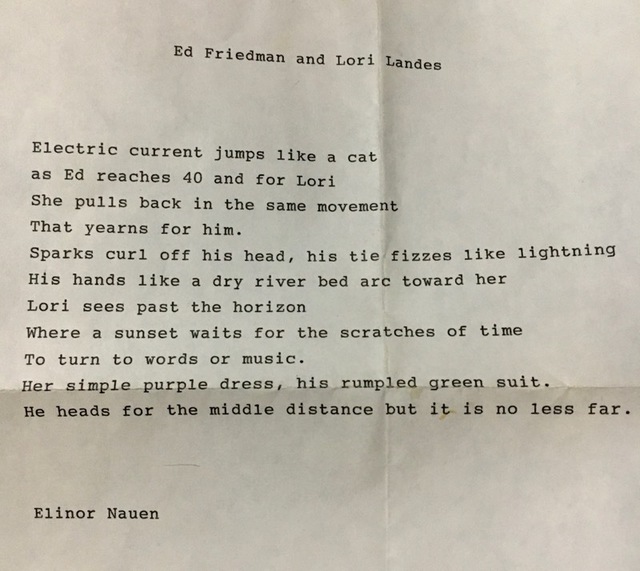 Ed Friedman and Lori Landes
Electric current jumps like a cat
as Ed reaches 40 and for Lori
She pulls back in the same movement
That yearns for him.
Sparks curl off his head, his tie fizzes like lightning
His hands like a dry river bed arc toward her
Lori sees past the horizon
Where a sunset waits for the scratches of time
To turn to words or music.
Her simple purple dress, his rumpled green suit.
He heads for the middle distance but it is no less far.
Elinor Nauen